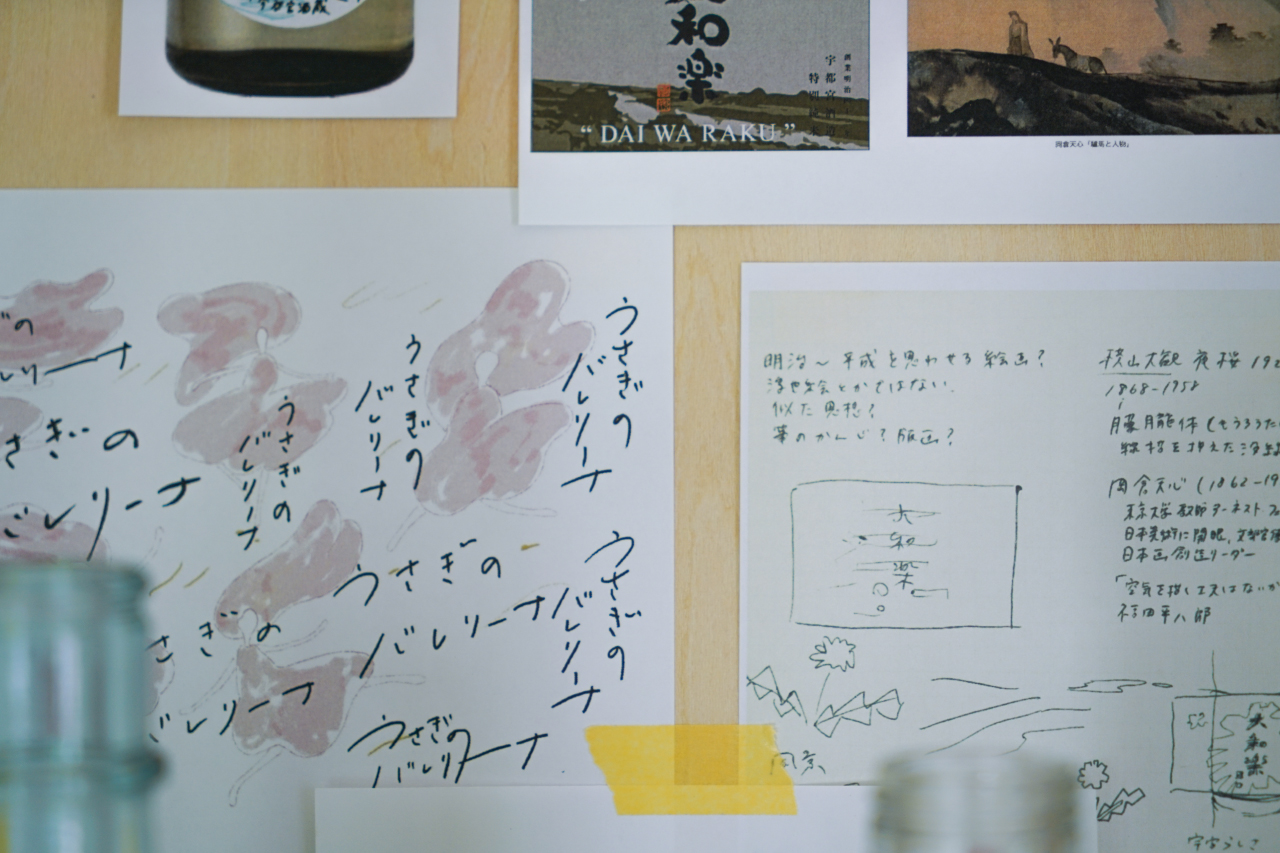 大和楽
"DAI WA RAKU"
創業明治
宇都宮酒造
特別
岡倉天心「驢馬と人物」
うさぎの
バレリーナ
うさぎの
バレリーナ
うさぎの
バレリーナ
うさぎの
バレリーナ
さぎの
バレリーナ
うさぎの
バレリーナ
うさぎの
バレリーナ
さぎの
バレリーナ
うさぎの
バレリーナ
明治〜平成を思わせる絵画?
浮世絵とかではない.
似た思想?
筆のかんじ?版画?
大和楽
風景
横山大観 夜桜 192
1868-1958
朦朧体(もうろうたい
線描を抑えた
岡倉天心(1862-19
東京大学 教師 アーネスト・フェ
日本美術に開眼,
日本画創造リーダー
「空気を描く工夫はないか
大和楽